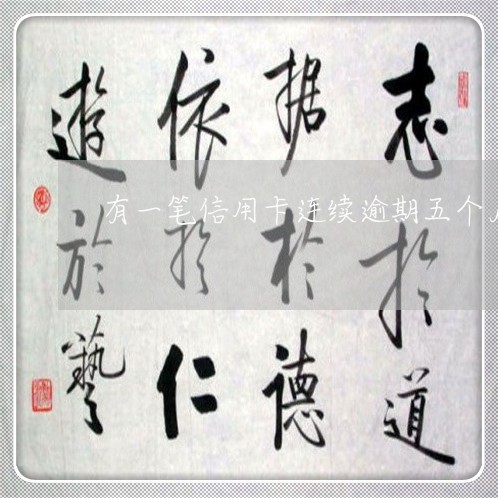 志於道
据於德
依於仁
遊於藝
有一笔信用卡连续逾期五个